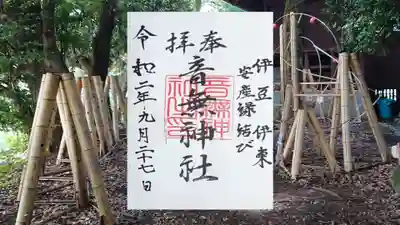 奉拝
伊豆 伊東
安産縁結び
音無神社
令和二年九月二十七日
音無神社印